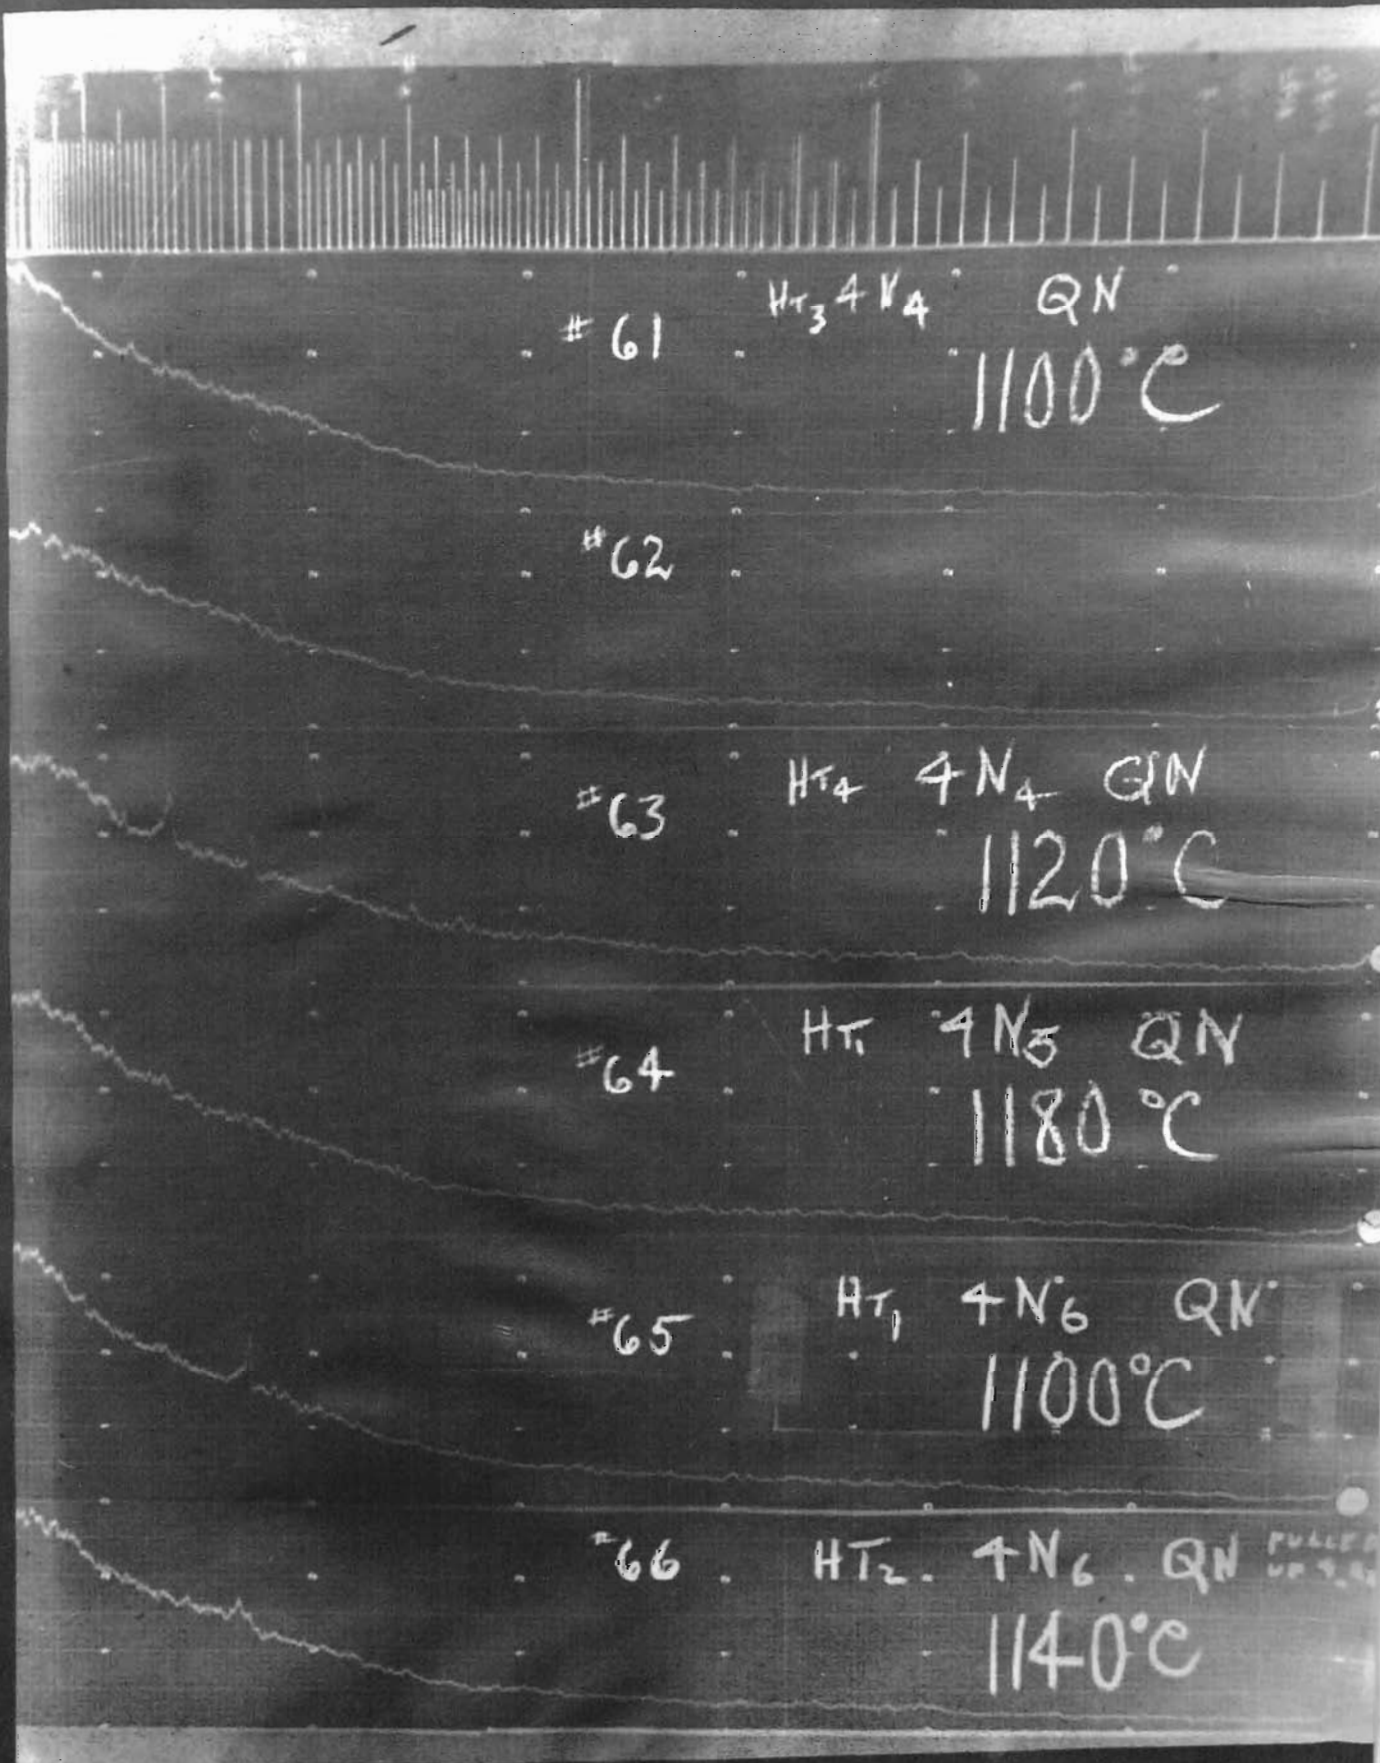 #61 HT3 4N4 QN
1100°C
#62
#63 HT4 4N4 QN
1120°C
#64 HT1 4N5 QN
1180°C
#65 HT1 4N6 QN
1100°C
#66 HT2 4N6 QN PULLED
UP
1140°C